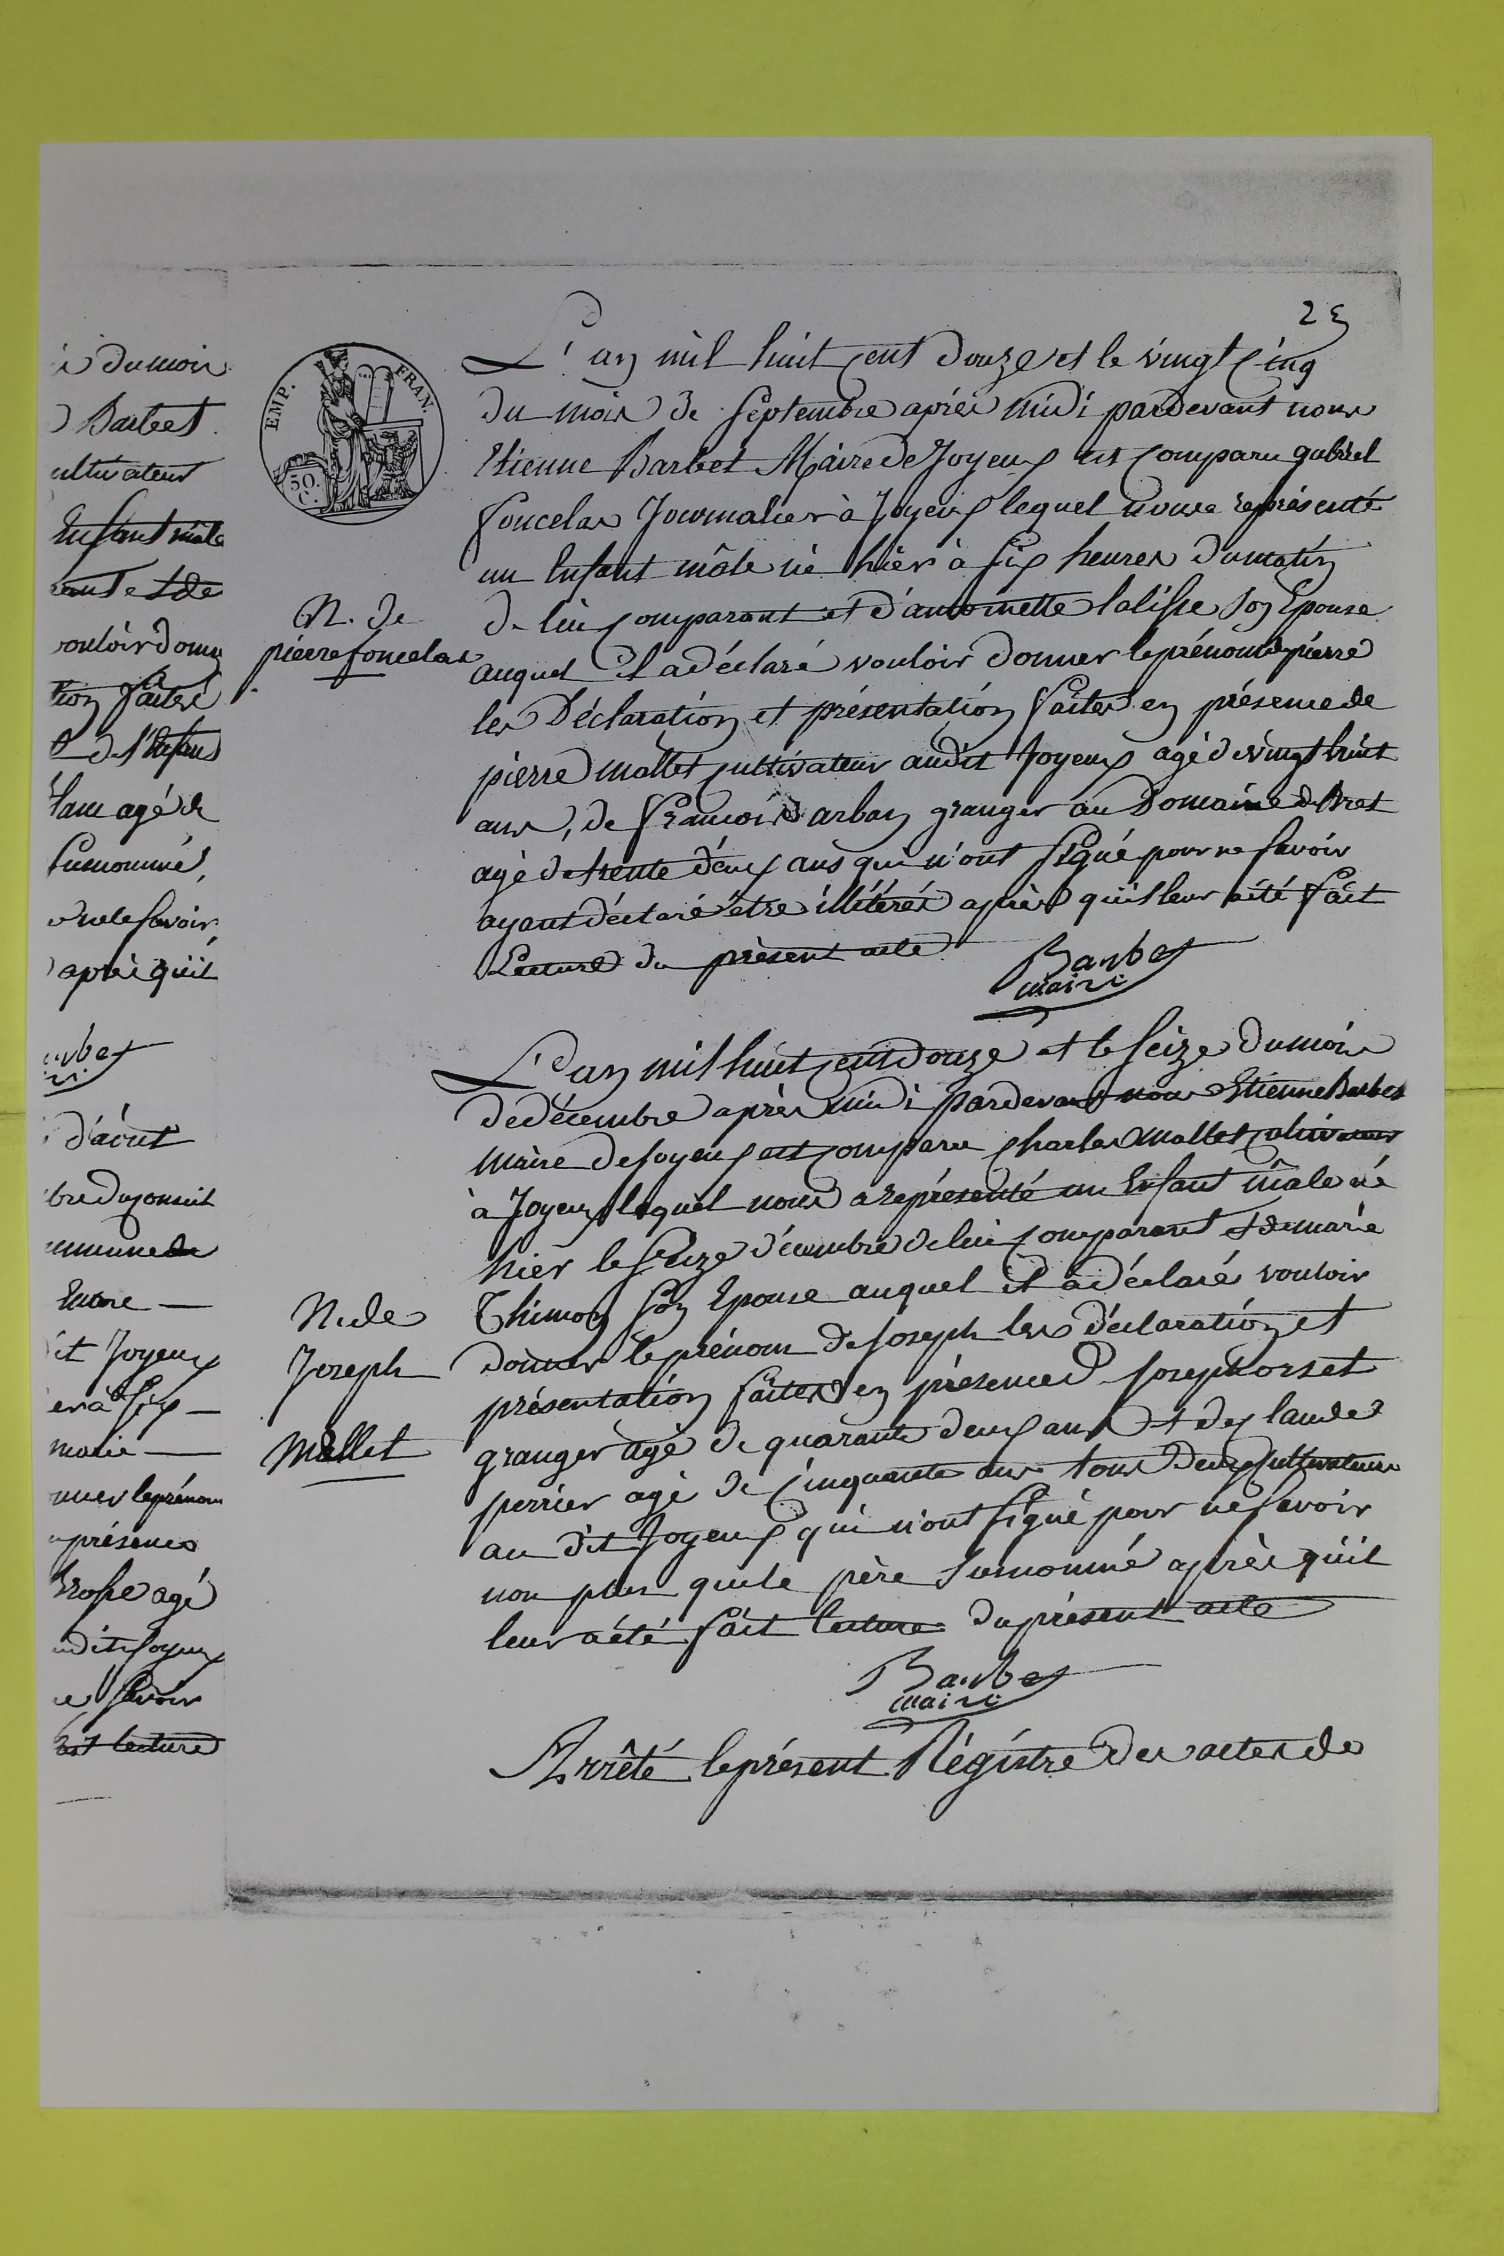 è du mois
Barbet
cultivateur
Enfant mâle
rant et de
vouloir donner
tion faites
de
agé de
surnommé,
ne le savoir
après qu'il
arbet
d'aout
bre du
commune de
Encore
dit Joyeux
er à six
marie
nner le prénom
présence
agé
audit Joyeux
ne savoir
fait lecture
EMP. FRAN.
50.
C.
N. de
pierre foncelas
N. de
Joseph
Mallet
25
L'an mil huit cent douze et le vingt cinq
du mois de Septembre après midi pardevant nous
Etienne Barbet Maire de Joyeux est comparu gabriel
foncelas Journalier à Joyeux lequel nous a représenté
un Enfant mâle né hier à six heures du matin
de lui comparant et d'antoinette lalisse son Epouse
auquel il a déclaré vouloir donner le prénom de pierre
les Déclaration et présentation faites en présence de
pierre mallet cultivateur audit Joyeux agé de vingt huit
ans, de françois darban granger au Domaine de Bret
agé de trente deux ans qui n'ont signé pour ne savoir
ayant déclaré être illitérés après qu'il leur a été fait
Lecture du présent acte
Barbet
maire
L'an mil huit cent douze et le seize du mois
de décembre après midi pardevant nous Etienne Barbet
maire de Joyeux est comparu Charles mallet cultivateur
à Joyeux lequel nous a représenté un Enfant mâle né
hier le seize décembre de lui comparant et de marie
Thimon son Epouse auquel il a déclaré vouloir
donner le prénom de Joseph les déclaration et
présentation faites en présence de Joseph orset
granger agé de quarante deux ans et de Claude
perrier agé de cinquante ans tous deux cultivateurs
au dit Joyeux qui n'ont signé pour ne savoir
non plus que le père surnommé après qu'il
leur a été fait lecture du présent acte
Barbet
maire
Arrêté le présent Régistre des actes de